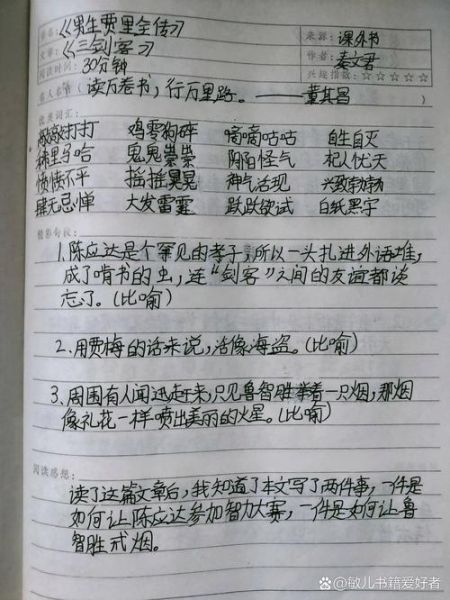 书名：《男生贾里全传》 来源：课外书
文章：《三剑客》 作者：秦文君
阅读时间：30分钟 兴趣指数：☆☆☆☆☆
名人名言（读万卷书，行万里路。——董其昌）
优美词汇：
敲敲打打 鸡零狗碎 嘀嘀咕咕 自生自灭
麻里马哈 鬼鬼祟祟 阴阳怪气 杞人忧天
愤愤不平 摇摇晃晃 神气活现 兴致勃勃
肆无忌惮 大发雷霆 跃跃欲试 白纸黑字
精彩句段：
1.陈应达是个罕见的孝子，所以一头扎进外语堆，
成了啃书的虫，连“剑客”之间的友谊都淡
忘了。（比喻）
2.用贾梅的话来说，活像海盗。（比喻）
3.周围有人闻迅赶来，只见鲁智胜举着一只烟，那烟
像礼花一样喷出美丽的火星。（比喻）
阅读感想：
读了这篇文章后，我知道了本文写了两件事，一件是
如何让陈应达参加智力大赛，一件是如何让鲁
智胜戒烟。
@敏儿书籍爱好者